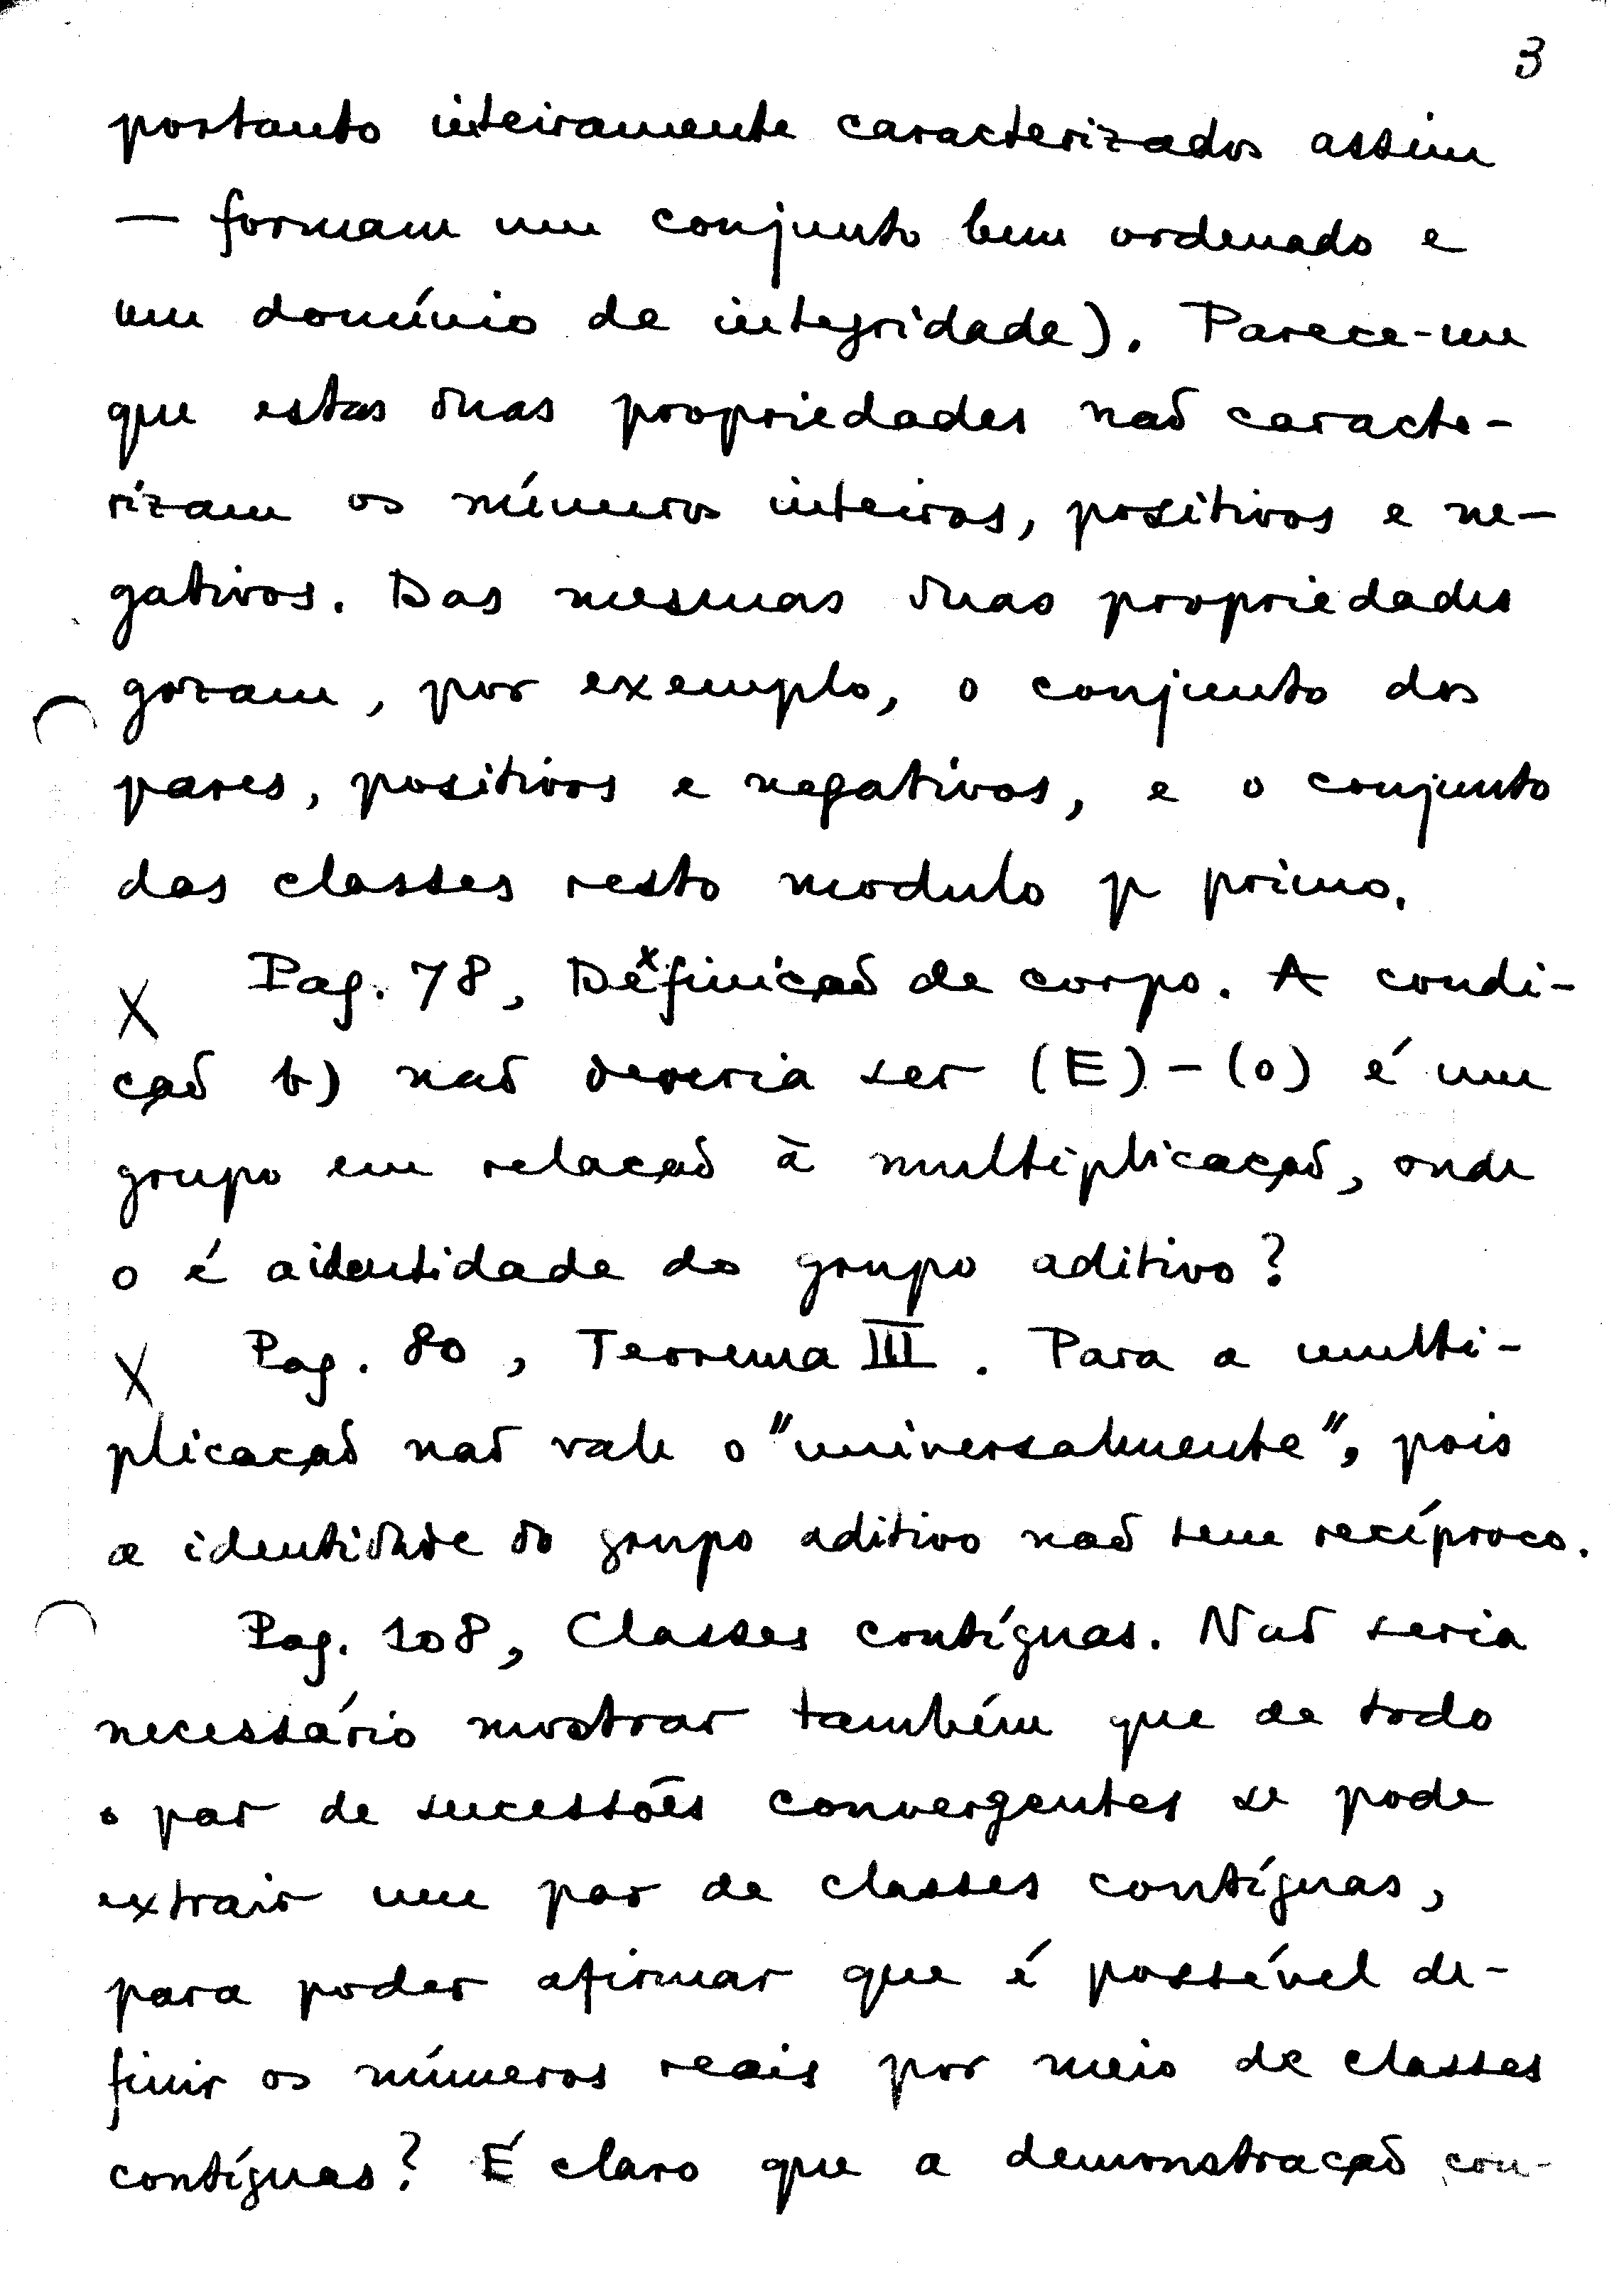 3
portanto inteiramente caracterizados assim
— formam um conjunto bem ordenado e
um domínio de integridade). Parece-me
que estas duas propriedades não caracte-
rizam os números inteiros, positivos e ne-
gativos. Das mesmas duas propriedades
gozam, por exemplo, o conjunto dos
pares, positivos e negativos, e o conjunto
das classes resto modulo p primo.
X Pag. 78, Definição de corpo. A condi-
ção b) não deveria ser (E) - (0) é um
grupo em relação à multiplicação, onde
0 é a identidade do grupo aditivo?
X Pag. 80, Teorema III. Para a multi-
plicação não vale o "universalmente", pois
a identidade do grupo aditivo não tem recíproco.
Pag. 108, Classes contíguas. Não seria
necessário mostrar também que de todo
o par de sucessões convergentes se pode
extrair um par de classes contíguas,
para poder afirmar que é possível de-
finir os números reais por meio de classes
contíguas? É claro que a demonstração con-